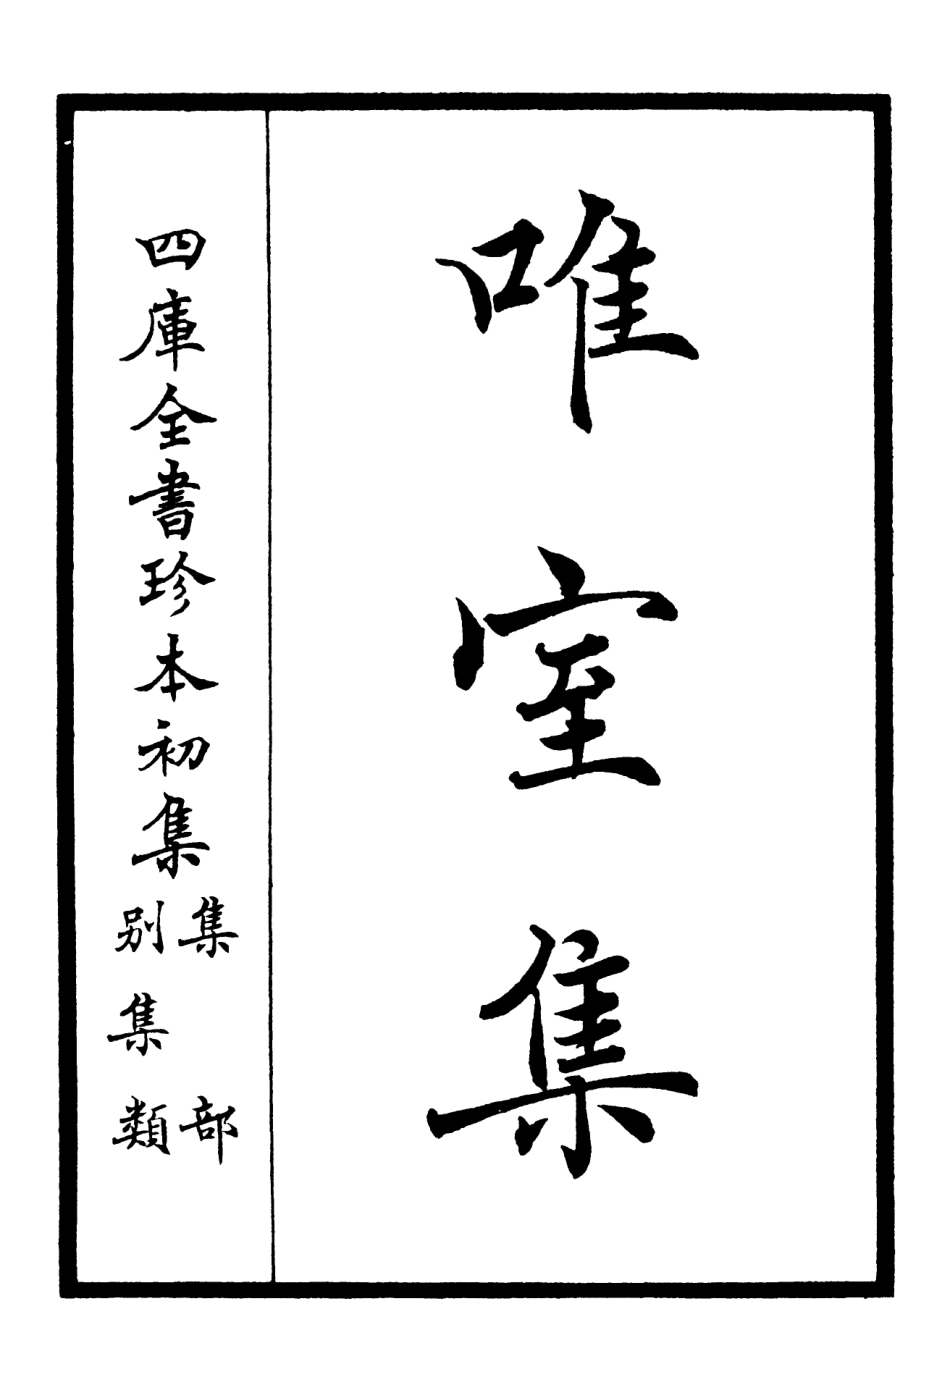 唯室集
四庫全書珍本初集
集部
別集類